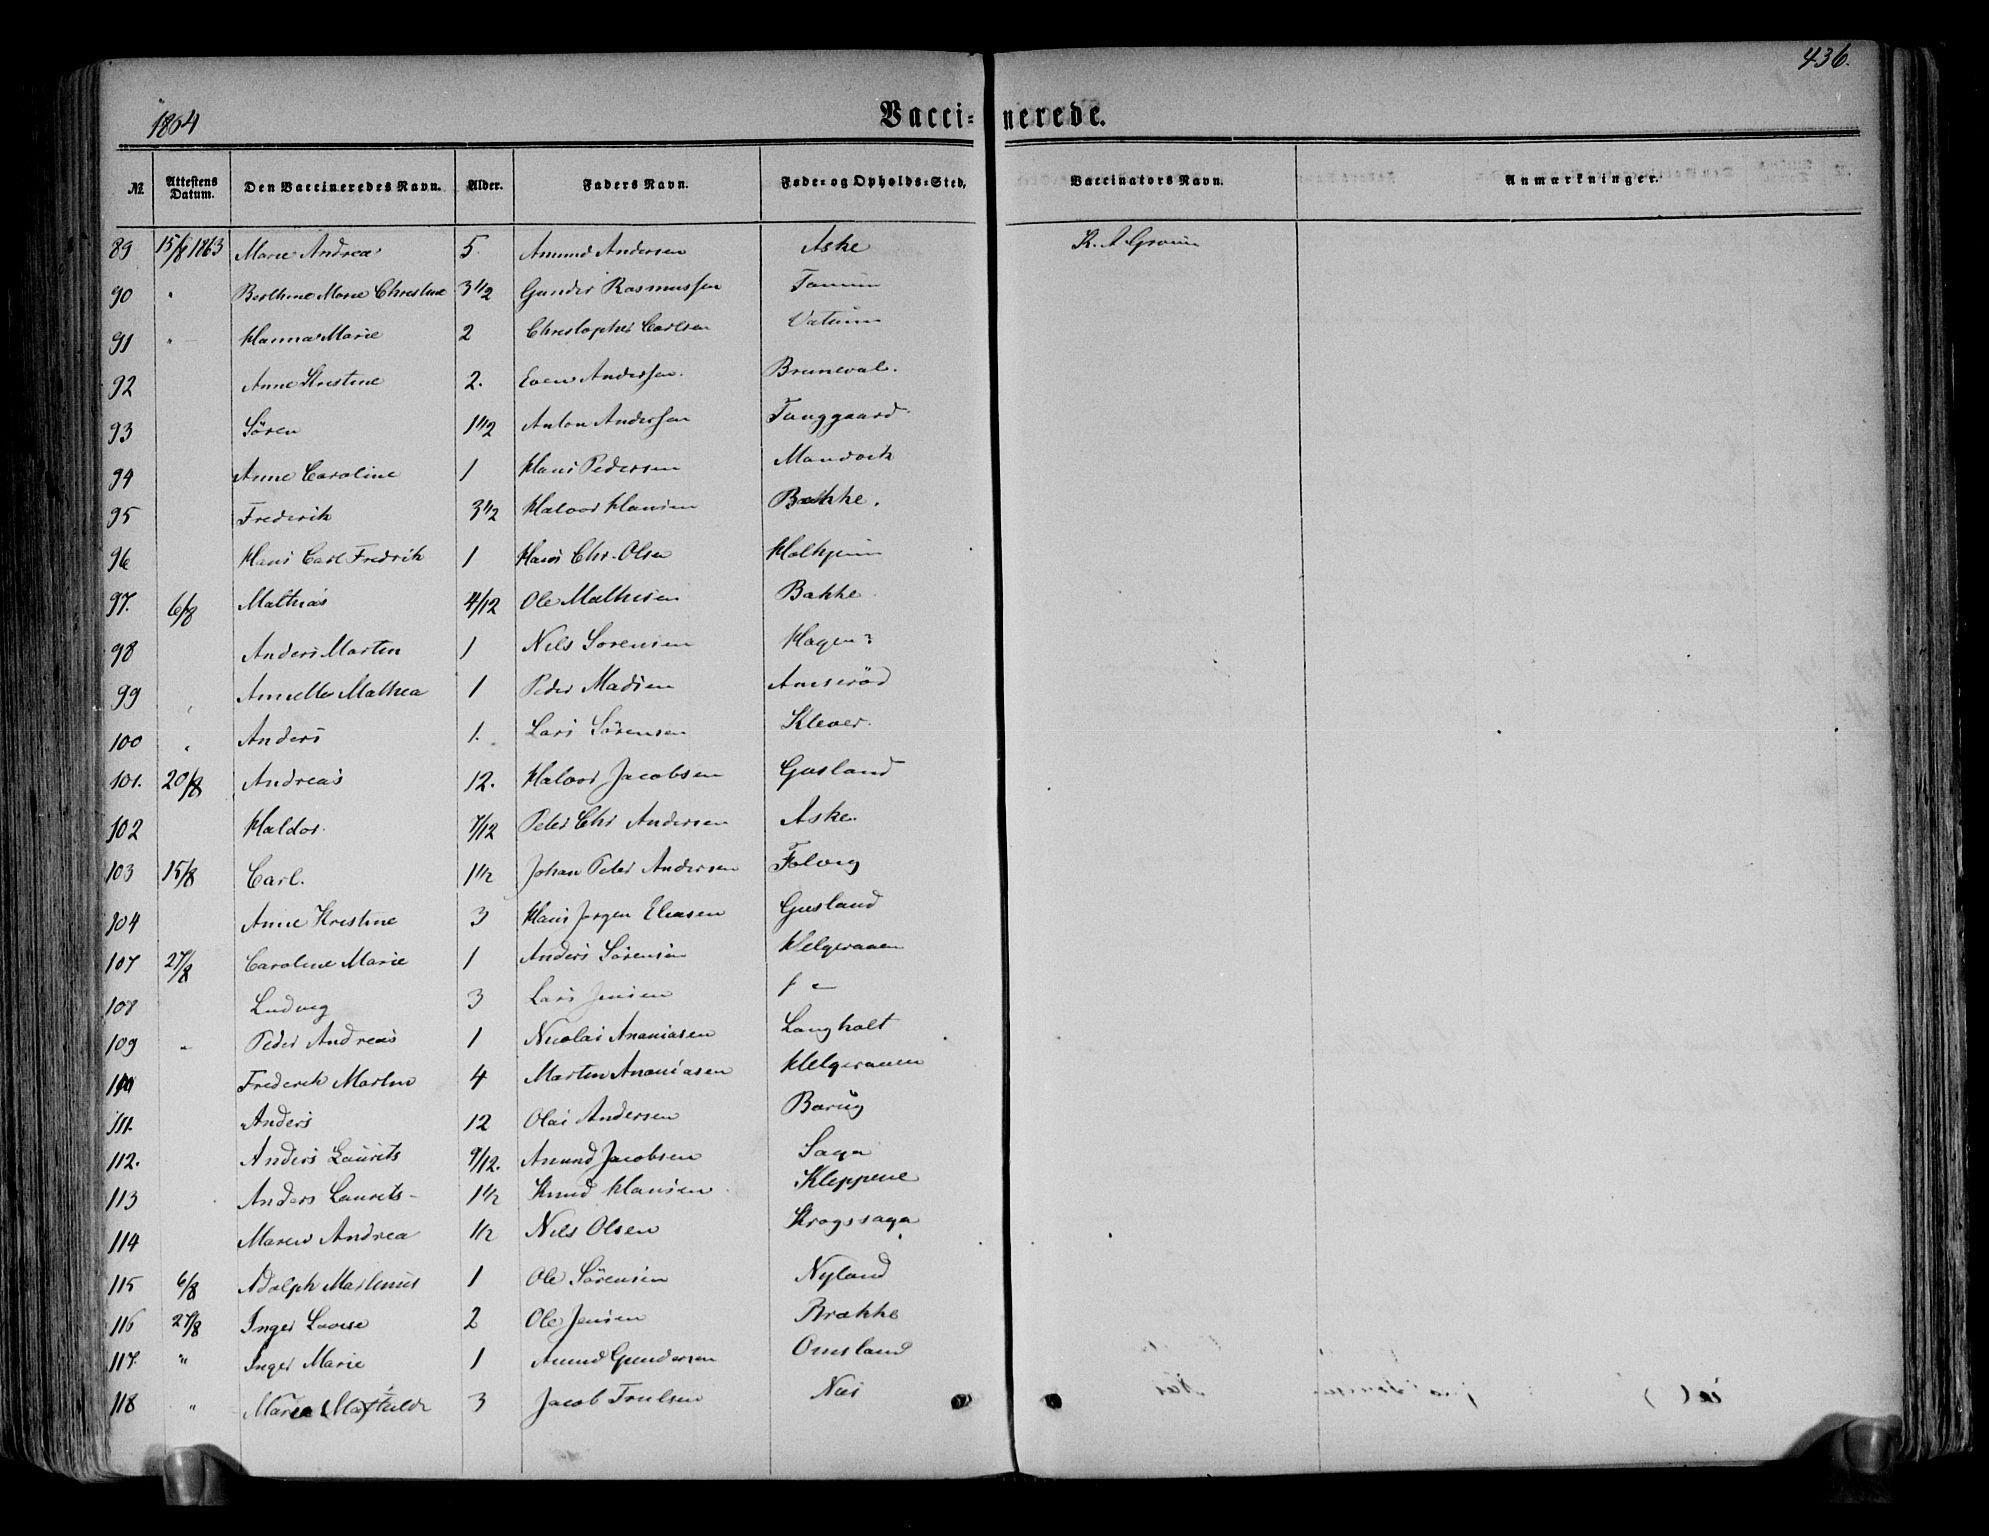 436.
1864
Vaccinerede.
No. Attestens Datum. Den Vaccineredes Navn. Alder. Faders Navn. Føde- og Opholds-Sted. Vaccinators Navn. Anmærkninger.
89 15/8 1863 Maren Andrea 5. Amund Andersen Aske
90 " Berthine Marie Christine 3 1/2 Gunder Rasmussen Tanum
91 " Hanna Marie 2 Christopher Carlsen Vatium
92 Anne Kristine 2. Even Andersen. Bruneval.
93 Sören 1 1/2 Anton Andersen Fauggaard
94 Anne Caroline 1 Hans Pedersen Mandvik
95 Frederik 3 1/2 Halvor Hansen Bakke.
96 Hans Carl Fredrik 1 Hans Chr. Olsen Holhjem
97. 6/8 Mathias 4/12 Ole Mathisen Bakke
98 Anders Martin 1 Nils Sorensen Hagen
99 Annette Mathea 1 Peder Madsen Anserød
100 " Anders 1. Lars Sörensen Klever.
101. 20/8 Andreas 12. Halvor Jacobsen Gusland
102 Haldor. 7/12 Peter Chr Andersen Aske
103 15/8 Carl. 1 1/2 Johan Peter Andersen Folvig
104 Anne Kristine 3 Hans Jørgen Eliasen Gusland
107 27/8 Caroline Marie 1 Anders Sörensen Helgeraaen
108 Ludvig 3 Lars Jensen
109 " Peder Andreas 1 Nicolai Ananiasen Langholt
110 Frederik Martin 4 Martin Ananiasen Helgeraaen
111. Anders 12 Olai Andersen Barüg
112. Anders Laurits 9/12. Amund Jacobsen Saga
113 Anders Laurits 1 1/2 Knud Hansen Kleppene
114 Maren Andrea 1/2 Nils Olsen Krogssaga
115 6/8 Adolph Martinius 1 Ole Sörensen Nyland
116 27/8 Inger Lovise 2 Ole Jensen Brække
117. " Inger Marie 1 Amund Gundersen Omsland
118 " Maren Mathilde 3 Jacob Trulsen Næs